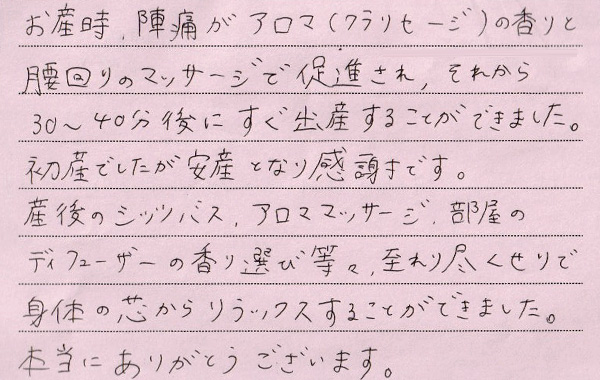 お産時、陣痛がアロマ(クラリセージ)の香りと
腰回りのマッサージで促進され、それから
30～40分後にすぐ出産することができました。
初産でしたが安産となり感謝です。
産後のシッツバス、アロママッサージ、部屋の
ディフューザーの香り選び等々、至れり尽くせりで
身体の芯からリラックスすることができました。
本当にありがとうございます。